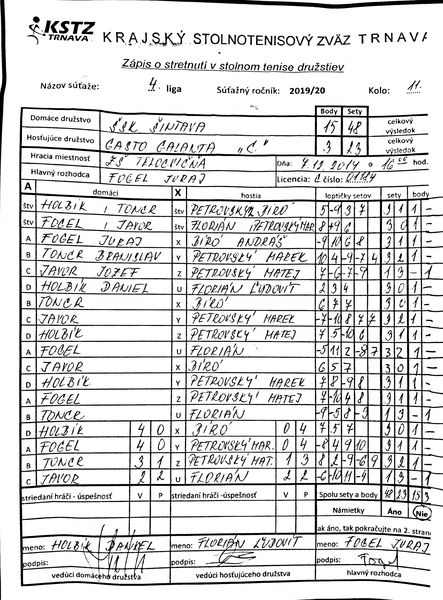 KSTZ TRNAVA KRAJSKÝ STOLNOTENISOVÝ ZVÄZ TRNAVA
Zápis o stretnutí v stolnom tenise družstiev
Názov súťaže: 4. liga Súťažný ročník: 2019/20 Kolo: 11.
Body Sety
Domáce družstvo ŠSK ŠINTAVA 15 48 celkový
Hosťujúce družstvo GASTO GALANTA "C" 3 23 výsledok
Hracia miestnosť ZŠ TELOCVIČNA Dňa: 7.12.2019 o 16 hod.
Hlavný rozhodca FOGEL JURAJ Licencia: C číslo:
A domáci X hostia loptičky setov sety body
štv HOLBÍK i TONCR štv PETROVSKÝ BIRÓ 5 -9 3 7 3 1 1 -
štv FOGEL i JAVOR štv FLORIÁN i PETROVSKÝ MAR. 8 9 6 3 0 1 -
A FOGEL JURAJ X BIRÓ ANDRÁŠ -9 10 6 8 3 1 1 -
B TONCR BRANISLAV Y PETROVSKÝ MAREK 10 4 -9 -7 4 3 2 1 -
C JAVOR JOZEF Z PETROVSKÝ MATEJ -7 -6 7 -9 1 3 - 1
D HOLBIK DANIEL U FLORIÁN ĽUDOVÍT 2 3 4 3 0 1 -
B TONCR X BIRÓ 6 7 7 3 0 1 -
C JAVOR Y PETROVSKÝ MAREK -7 -10 8 7 7 3 2 1 -
D HOLBÍK Z PETROVSKÝ MATEJ 7 5 -10 6 3 1 1 -
A FOGEL U FLORIÁN -5 11 2 -8 7 3 2 1 -
C JAVOR X BIRÓ 6 5 7 3 0 1 -
D HOLBÍK Y PETROVSKÝ MAREK 7 8 -9 8 3 1 1 -
A FOGEL Z PETROVSKÝ MATEJ 7 -10 4 8 3 1 1 -
B TONCR U FLORIÁN -9 -5 8 -3 1 3 - 1
D HOLBÍK 4 0 X BIRÓ 0 4 7 5 7 3 0 1 -
A FOGEL 4 0 Y PETROVSKÝ MAR. 0 4 -8 4 9 10 3 1 1 -
B TONCR 3 1 Z PETROVSKÝ MAT. 1 3 8 2 -9 -6 9 3 2 1 -
C JAVOR 2 2 U FLORIÁN 2 2 -6 -10 11 -4 1 3 - 1
striedaní hráči - úspešnosť V P striedaní hráči - úspešnosť V P Spolu sety a body 48 23 15 3
Námietky Áno Nie
ak áno, tak pokračujte na 2. strane
meno: HOLBÍK DANIEL meno: FLORIÁN ĽUDOVÍT meno: FOGEL JURAJ
podpis: podpis: podpis: Fogel
vedúci domáceho družstva vedúci hosťujúceho družstva hlavný rozhodca